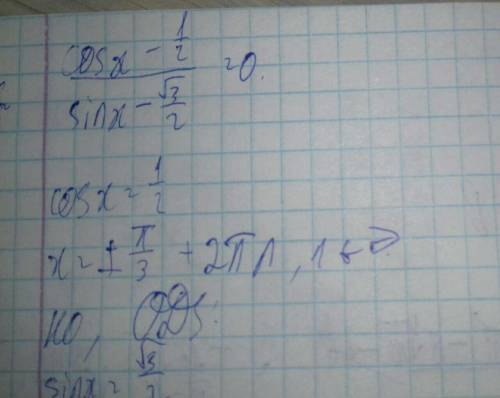 (cosx - 1/2) / (sinx - √3/2) = 0.
cosx = 1/2
x = ± π/3 + 2πn, n ∈
но, ОДЗ:
sinx = √3/2